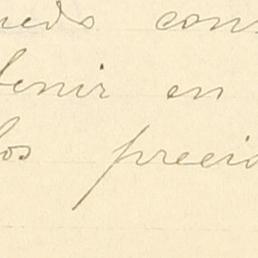 uedo con
benir en
los precio